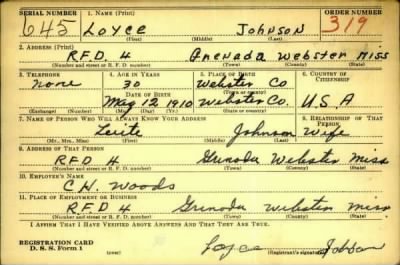 SERIAL NUMBER 1. NAME (Print) ORDER NUMBER
645 LOYCE JOHNSON 319
(First) (Middle) (Last)
2. ADDRESS (Print)
R.F.D 4 Grenada Webster Miss
(Number and street or R. F. D. number) (Town) (County) (State)
3. TELEPHONE 4. AGE IN YEARS 5. PLACE OF BIRTH 6. COUNTRY OF CITIZENSHIP
none 30 Webster Co
DATE OF BIRTH
May 12 1910 Webster Co. U.S.A
(Exchange) (Number) (Mo.) (Day) (Yr.) (State or country)
7. NAME OF PERSON WHO WILL ALWAYS KNOW YOUR ADDRESS 8. RELATIONSHIP OF THAT PERSON
Johnson Wife
(Mr., Mrs., Miss) (First) (Middle) (Last)
9. ADDRESS OF THAT PERSON
R.F.D 4 Grenada Webster Miss
(Number and street or R. F. D. number) (Town) (County) (State)
10. EMPLOYER'S NAME
C.H. Woods
11. PLACE OF EMPLOYMENT OR BUSINESS
R.F.D 4 Grenada Webster Miss
(Number and street or R. F. D. number) (Town) (County) (State)
I AFFIRM THAT I HAVE VERIFIED ABOVE ANSWERS AND THAT THEY ARE TRUE.
REGISTRATION CARD
D. S. S. Form 1
Loyce Johnson
(over) (Registrant's signature)